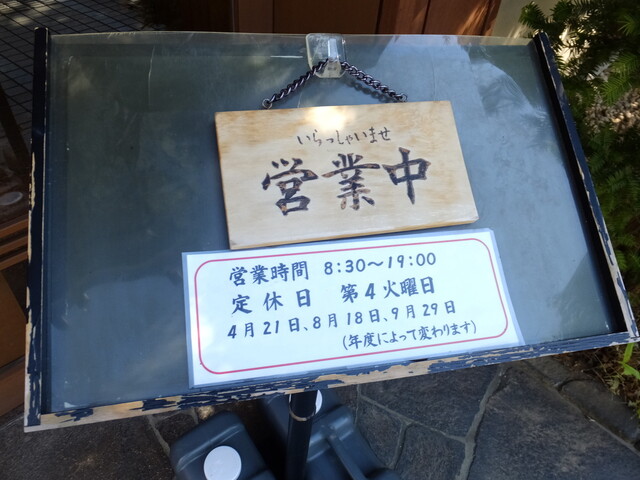 いらっしゃいませ
営業中
営業時間 8:30～19:00
定休日 第4火曜日
4月21日、8月18日、9月29日
(年度によって変わります)